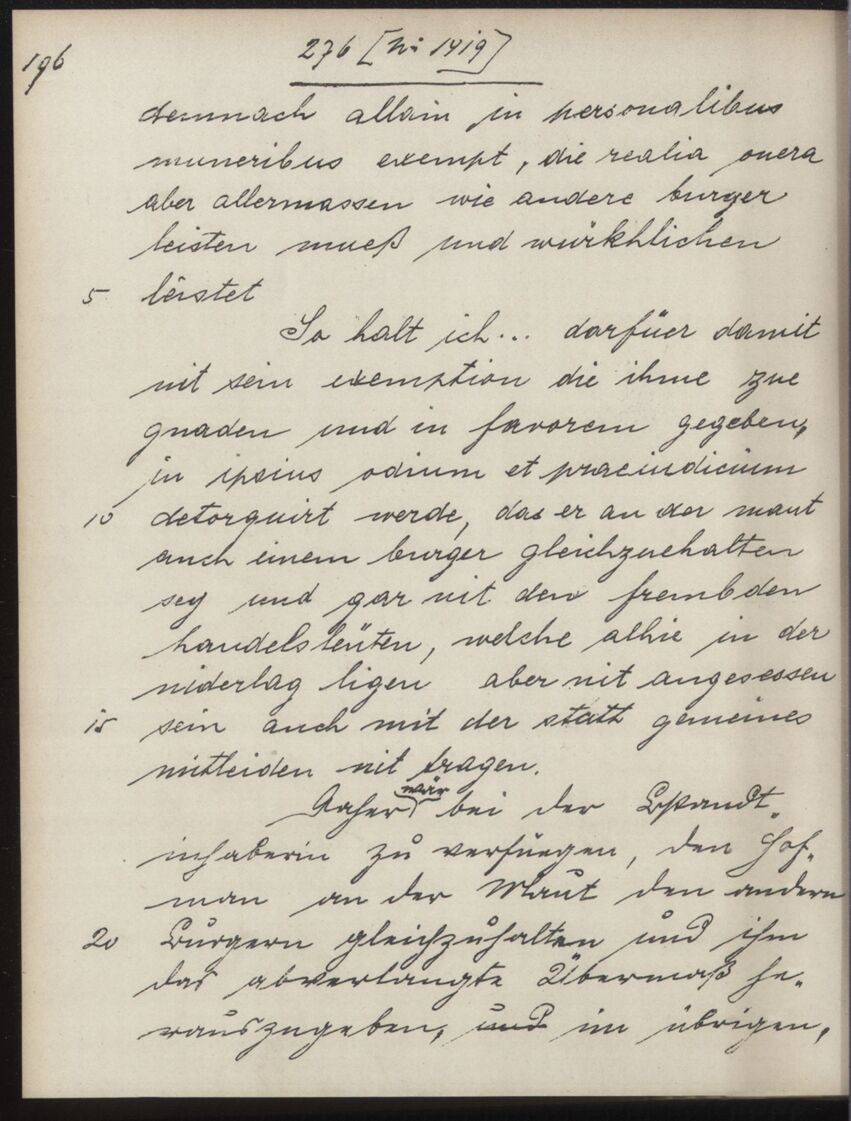 196
276 [N: 1419]
demnach allain in personalibus
muneribus exempt, die realia onera
aber allermassen wie andere burger
leisten mueß und würkhlichen
5 leistet
So halt ich... darfüer damit
nit sein exemption die ihme zue
gnaden und in favorem gegeben,
in ipsius odium et praeiudicium
10 detorquirt werde, das er an der maut
auch einem burger gleichzuehalten
sey und gar nit den frembden
handelsleüten, welche alhie in der
niderlag ligen aber nit angesessen
15 sein auch mit der statt gemeines
mitleiden nit tragen.
Daher wär bei der Bstandt-
inhaberin zu verfüegen, den Hof-
man an der Maut den andern
20 Burgern gleichzuhalten und ihm
das abverlangte Übermaß he-
rauszugeben, und im übrigen,